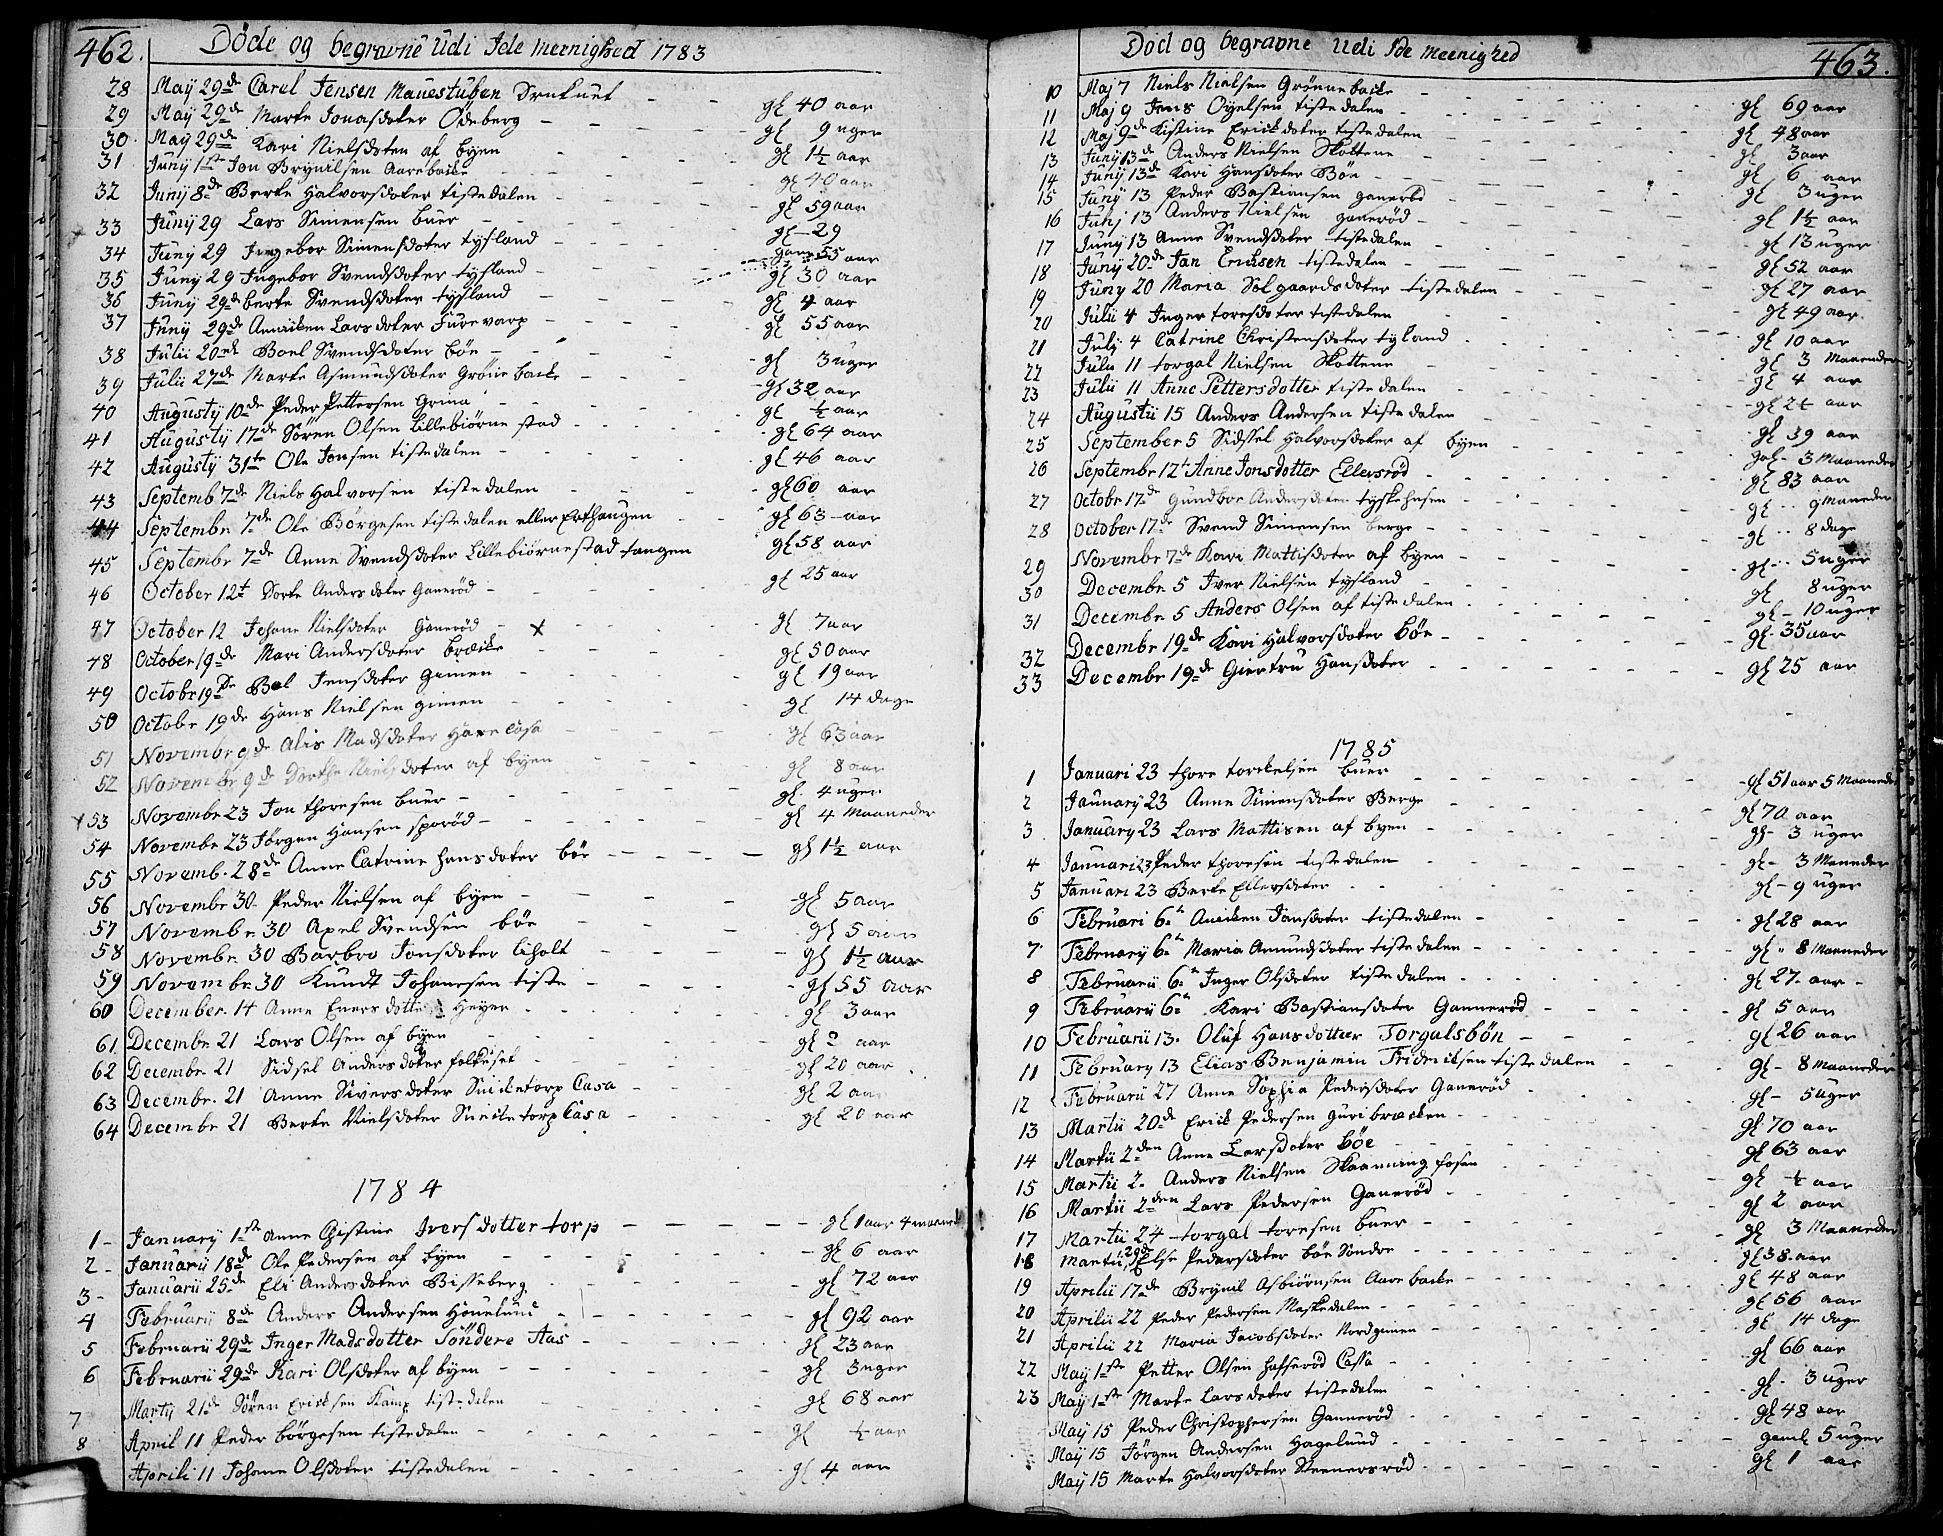 462. Döde og begravne Udi Ide meenighed 1783
28 May 29de Carel Jensen Mauestuben - - gl 40 aar
29 May 29de Marte Jonasdoter Ödeberg - - - gl 9 uger
30. May 29de Kari Nielsdoter af byen - - - gl 1½ aar
31 Juny 1ste Jon Brynilsen Aarebacke - - - gl 40 aar
32 Juny 8de Berte Halvorsdoter tistedalen - - - gl 59 aar
33 Juny 29 Lars Simensen buer - - - gl - 29
34 Juny 29 Ingebor Simensdoter tysland - - - 55 aar
35 Juny 29 Ingebor Svendsdoter tysland - - - gl 30 aar
36 Juny 29de berte Svendsdoter tysland - - - gl 4 aar
37 Juny 29de Anniken Larsdoter Furevarp - - - gl 55 aar
38 Julii 20 Boel Svendsdoter böe - - - gl 3 uger
39 Julii 27de Marte Asmundsdoter Grönebacke - - - gl 32 aar
40 Augusty 10de Peder Pettersen Grina - - - gl ½ aar
41 Augusty 17de Sören Olsen Lillebiörnestad - - - gl 64 aar
42 Augusty 31te Ole Jonsen tistedalen - - - gl 46 aar
43 Septemb 7de Niels Halvorsen tistedalen - - - gl 60 aar
44 Septembr 7de Ole Börgesen tistedalen eller Erthaugen - - gl 63 - aar
45 Septembr 7de Anne Svendsdoter Lillebiörnestad tangen - gl 58 aar
46 October 12t Dorte Andersdoter Ganerød - - - gl 25 aar
47 October 12 Johane Nielsdoter Ganerød - x - - gl 7 aar
48 October 19de Mari Andersdoter bräcke - - - gl 50 aar
49 Octobr 19de Boel Jensdoter gimen - - - gl 19 aar
50 Octobr 19de Hans Nielsen gimen - - - gl 14 dage
51 Novembr 9de Alis Madsdoter Hare Casa - - - gl 63 aar
52 Novembr 9de Dorthe Nielsdoter af byen - - - gl 8 aar
53 Novembr 23 Jon thoresen buer - - - gl. 4 uger
54 Novembr 23 Jörgen Hansen sporød - - - gl 4 Maaneder
55 Novemb. 28de Anne Catrine hansdoter böe - - - gl 1½ aar
56 Novembr 30. Peder Nielsen af byen - - - gl 5 aar
57 Novembr 30 Axel Svendsen böe - - - gl 5
58 Novembr. 30 Barbro Jonsdoter liholt - - - gl 1½ aar
59 Novembr 30 Knudt Johanesen tiste - - - gl 55 aar
60 December. 14 Anne Enersdotter Heyer - - - gl 3 aar
61 Decembr 21 Lars Olsen af byen - - - gl 2 aar
62 Decembr 21 Sidsel Andersdoter folkesel - - - gl 20 aar
63 Decembr. 21 Anne Siversdoter Snicketorp Casa - - - gl 2 aar
64 Decembr 21 Berte Nielsdoter Snicketorp Casa - - - gl 20 aar
1784
1 - January 1ste Anne Christine Iversdotter torp - - - gl 1 aar 4 maaned
2 - Januarii 18de Ole Pedersen af byen - - - gl 6 aar
3 - Januarii 25de Eli Andersdoter Bisseberg - - - gl 72 aar
4 Februarii 8de Anders Andersen Houelund - - - gl 92 aar
5 Februarii 29de Inger Madsdotter Söndere Aas - - - gl 23 aar
6 Februarii 29de Kari Olsdoter af byen - - - gl 3 uger
7 Marty 21de Sören Ericksen Kamp tistedalen - - - gl 68 aar
8 April 11 Peder börgesen tistedalen - - - gl ½ aar
Aprili 11 Johane Olsdoter tistedalen - - - gl 4 aar
Död og begravne udi Ide meenighed 463.
10 Maj 7 Niels Nielsen Grönnebacke - - - gl 69 aar
11 Maj 9 Jens Oyelsen tistedalen - - - gl 48 aar
12 Maj 9de Kistine Erickdoter tistedalen - - - gl 3 aar
13 Juny 13de Anders Nielsen Skottene - - - gl 6 aar
14 Juny 13de Kari Hansdoter Böe - - - gl 3 uger
15 Juny 13 Peder Bastiansen ganerød - - - gl 1½ aar
16 Junj 13 Anders Nielsen ganerød - - - gl 13 uger
17 Juny 13 Anne Svendsdoter tistedalen - - - gl 52 aar
18 Juny 20de Jan Ericksen tistedalen - - - gl 27 aar
19 Juny 20 Maria Solgaardsdoter tistedalen - - - gl 49 aar.
20 Julii 4 Inger toresdoter tistedalen - - - gl 10 aar
21 Julj 4 Catrine Christensdoter tysland - - - gl 3 Maaneder
22 Julii 11 torgal Nielsen Skottene - - - gl 4 aar
23 Julii 11 Anne Pettersdotter tistedalen - - - gl 2½ aar
24 Augustii 15 Anders Andersen tistedalen - - - gl 39 aar
25 September 5 Sidssel Halvorsdoter af byen - - - 3 Maaneder
26 Septembr 12t Anne Jonsdotter Ellersröd - - - gl 83 aar
27 Octobr 17de Gundbor Andersdoter tyskehusen - - - gl 9 Maneder
28 October 17de Svend Simensen berge - - - gl 8 dage
29 Novembr 7de Kari Mattisdoter af byen - - - gl - 5 uger
30 Decembr 5 Iver Nielsen tysland - - - gl 8 uger
31 Decembr 5 Anders Olsen af tistedalen - - - gl - 10 uger
32 Decembr 19de Kari Halvorsdoter böe - - - gl. 35 aar
33 Decembr 19de Giertru Hansdoter - - - gl 25 aar
1785
1 Januari 23 thore torckelsen buer - - - gl 51 aar 5 Maaneder
2 January 23 Anne Simensdoter Berge - - - gl 70 aar
3 January 23 Lars Mattisen af byen - - - gl - 3 uger
4 Januari 23 Peder thoresen tistedalen - - - gl - 3 Maneder
5 Januari 23 Berte Ellersdoter - - - gl - 9 uger
6 Februari 6te Anniken Jansdoter tistedalen - - - gl 28 aar
7. February 6te Maria Amundsdoter tistedalen - - - gl 8 Maaneder
8 Februarii 6te Inger Olsdoter tistedalen - - - gl 27 - aar -
9 Februarii 6te Kari Bastiansdoter Gannerød - - - gl 5 aar
10 Februarii 13. Oluf Hansdotter Torgalsbön - - - gl 26 aar
11 February 13 Elias Benjamin Fridericksen tistedalen - - - gl - 8 Maaneder
12 Februarii 27 Anne Sophia Pedersdoter Ganerød - - - gl - 5 uger
13 Martii 20de Erick Pedersen guribracken - - - gl 70 aar
14 Martii 2den Anne Larsdoter böe - - - gl 63 aar
15 Martii 2. Anders Nielsen Skaanning fosen - - - gl ½ aar
16 Martii 2den Lars Pedersen Ganerød - - - gl 2 aar
17 Martii 24 torgal toresen buer - - - gl 3 Maaneder
18 Martii, 29de Else Pedersdoter böe Söndre - - - gl 38 aar
19 Aprilii 17de Brynil Asbiörnsen Aarebacke - - - gl 48 aar
20 Aprilii 22 Peder Pedersen Maskedalen - - - gl 56 aar
21 Aprilii 22 Maria Jacobsdoter Nordgimen - - - gl 14 dage
22 May 1ste Petter Olsen hafserød Cassa - - - gl 66 aar
23 May 1ste Marte Larsdoter tistedalen - - - gl. 3 uger
May 15 Peder Christophersen Gannerød - - - gl 48 aar
May 15 Jörgen Andersen Hagelund - - - gaml 5 uger
May 15 Marte Halvorsdoter Steenersrød - - - gl 1 aar